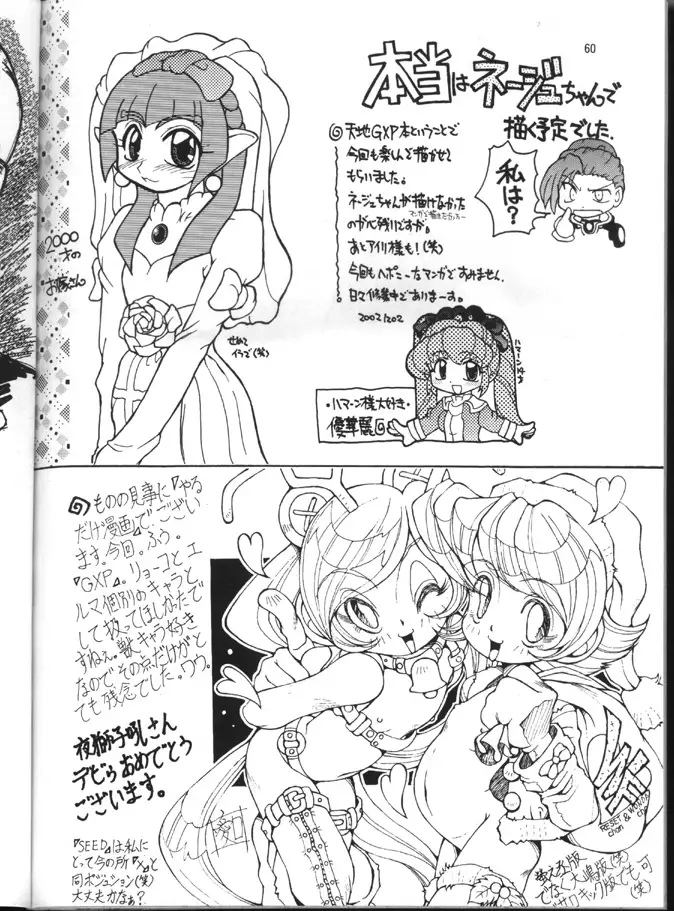 60
本当はネージュちゃんで
描く予定でした.
私は?
天地GXP本ということで
今回も楽しんで描かせて
もらいました。
ネージュちゃんが描けなかった
のが心残りですが。
あとアイリ様も!(笑)
今回もヘボミーなマンガですみません.
日々修業中でありまーす。
2002,1202
2000
才の
お嫁さん
せめて
イラで(笑)
ハマーンゆき
・ハマーン様大好き・
優華麗
ものの見事に『やる
だけ漫画』でござい
ます。今回。ふぅ。
『GXP』。リョーコとエ
ルマ個別のキャラと
して扱ってほしかったで
すねぇ。獣キャラ好き
なのでその点だけがと
ても残念でした。ワウ。
夜獅子吼さん
デビうおめでとう
ございます。
『SEED』は私に
とって今の所『X』と
同ポジション(笑)
大丈夫かなぁ?
RESET &
chan
でなく大嶋版(笑)
キック版でも可
(笑)